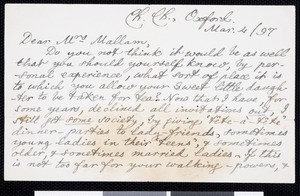 Ch. Ch., Oxford.
Mar. 4/97
Dear Mrs Mallam,
Do you not think it would be as well
that you should yourself know, by per-
sonal experience, what sort of place it is
to which you allow your sweet little daugh-
ter to be taken for tea? Now that I have, for
some years, declined all invitations out, I
still get some society, by giving tête-à-tête
dinner-parties to lady-friends, sometimes
young ladies in their 'teens', & sometimes
older, & sometimes married ladies. If this
is not too far for your walking-powers, &